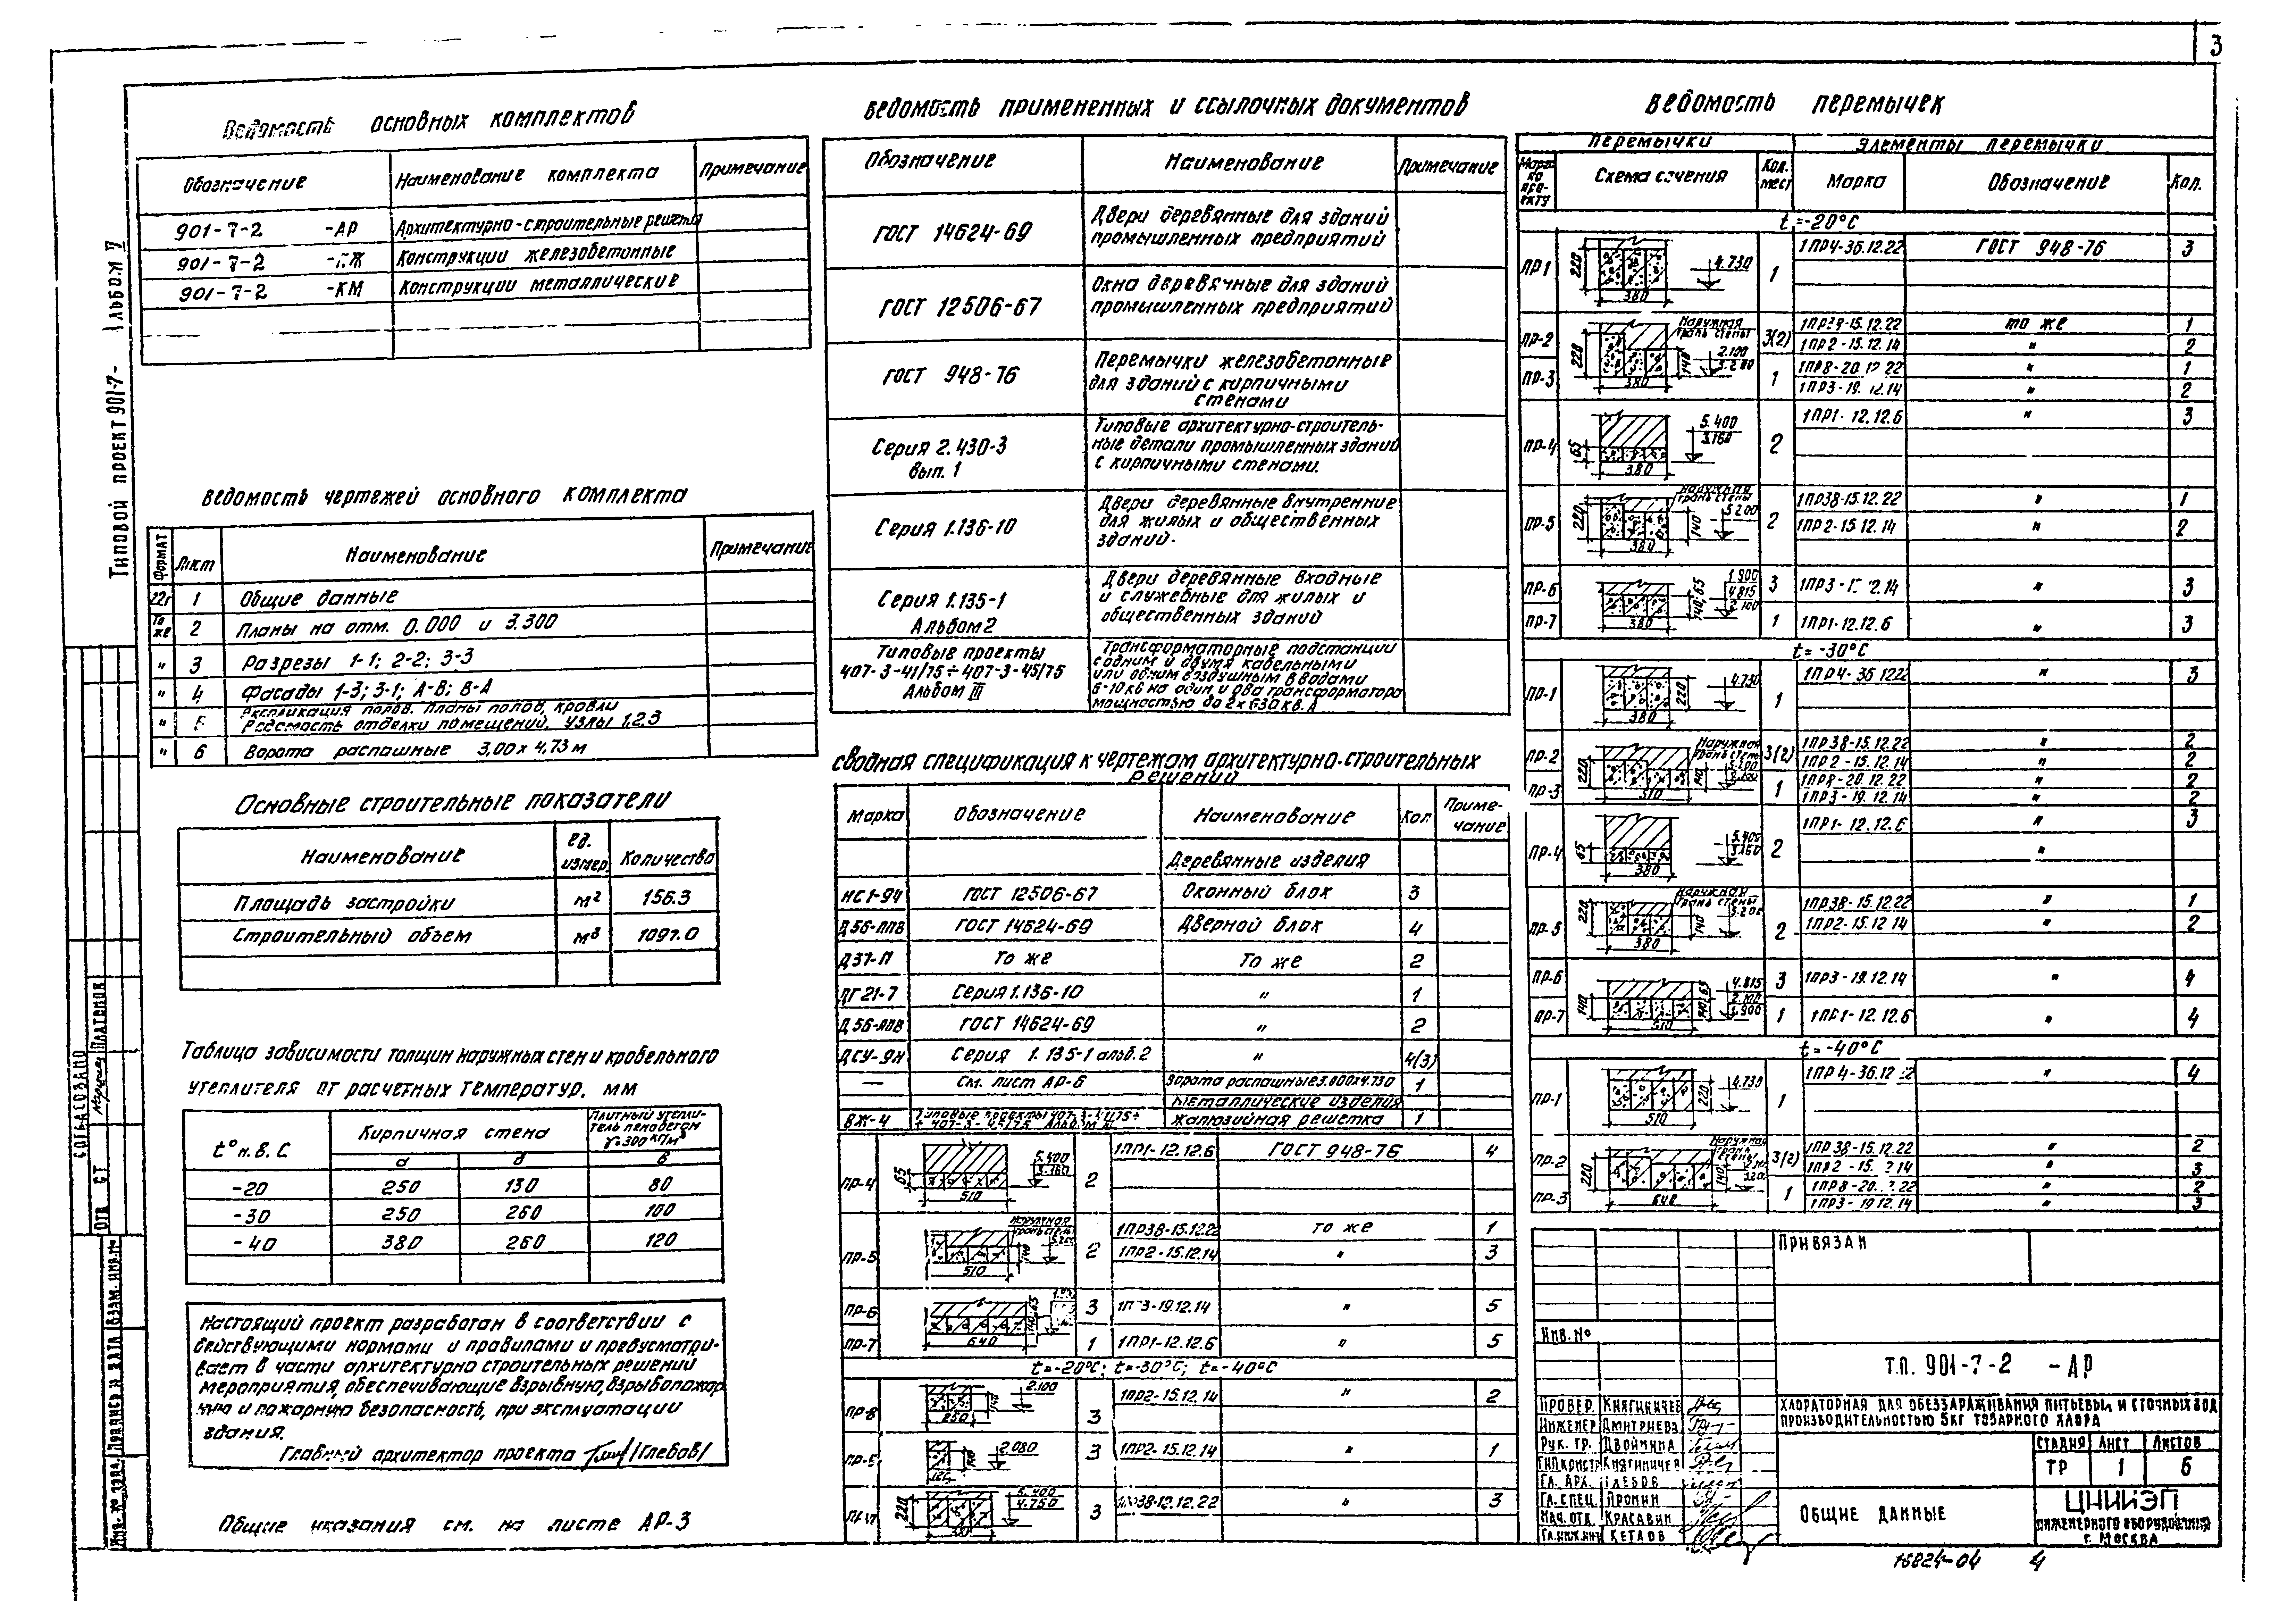 3
Типовой проект 901-7- Альбом V
Ведомость основных комплектов
Обозначение Наименование комплекта Примечание
901-7-2 -АР Архитектурно-строительные решения
901-7-2 -КЖ Конструкции железобетонные
901-7-2 -КМ Конструкции металлические
Ведомость чертежей основного комплекта
Формат Лист Наименование Примечание
22г 1 Общие данные
То же 2 Планы на отм. 0.000 и 3.300
" 3 Разрезы 1-1; 2-2; 3-3
" 4 Фасады 1-3; 3-1; А-В; В-А
" 5 Экспликация полов. Планы полов, кровли
Ведомость отделки помещений. Узлы 1.2.3
" 6 Ворота распашные 3,00х4,73м
Основные строительные показатели
Наименование Ед. измер. Количество
Площадь застройки м² 156.3
Строительный объем м³ 1097.0
Таблица зависимости толщин наружных стен и кровельного
утеплителя от расчетных температур, мм
t° н.в. С Кирпичная стена Плитный утепли-
тель пенобетон
γ=300 кг/м³
а б в
-20 250 130 80
-30 250 260 100
-40 380 260 120
Настоящий проект разработан в соответствии с
действующими нормами и правилами и предусматри-
вает в части архитектурно строительных решений
мероприятия, обеспечивающие взрывную, взрывопожар
ную и пожарную безопасность, при эксплуатации
здания.
Главный архитектор проекта /Глебов/
Общие указания см. на листе АР-3
Ведомость примененных и ссылочных документов
Обозначение Наименование Примечание
ГОСТ 14624-69 Двери деревянные для зданий
промышленных предприятий
ГОСТ 12506-67 Окна деревянные для зданий
промышленных предприятий
ГОСТ 948-76 Перемычки железобетонные
для зданий с кирпичными
стенами
Серия 2.430-3
вып. 1
Типовые архитектурно-строитель-
ные детали промышленных зданий
с кирпичными стенами.
Серия 1.136-10 Двери деревянные внутренние
для жилых и общественных
зданий.
Серия 1.135-1
Альбом 2
Двери деревянные входные
и служебные для жилых и
общественных зданий
Типовые проекты
407-3-41/75÷407-3-45/75
Альбом III
Трансформаторные подстанции
с одним и двумя кабельными
или одним воздушным вводами
6-10кв на один и два трансформатора
мощностью до 2х630кв.А
Сводная спецификация к чертежам архитектурно-строительных
решений
Марка Обозначение Наименование Кол Приме-
чание
Деревянные изделия
НС1-94 ГОСТ 12506-67 Оконный блок 3
Д56-ППВ ГОСТ 14624-69 Дверной блок 4
Д37-П То же То же 2
ДГ21-7 Серия 1.136-10 " 1
Д56-ЛПВ ГОСТ 14624-69 " 2
ДСУ-9Н Серия 1.135-1 альб.2 " 4(3)
— См. лист АР-6 Ворота распашные 3.000х4.730 1
Металлические изделия
ВЖ-4 Типовые проекты 407-3-41/75÷ Жалюзийная решетка 1
÷ 407-3-45/75 Альбом III
ПР-4 65 510 5.400 3.160 2 1ПР1-12.12.6 ГОСТ 948-76 4
ПР-5 Наружная грань стены 140 510 2 1ПР38-15.12.22 То же 1
1ПР2-15.12.14 " 3
ПР-6 3 1ПР3-19.12.14 " 5
ПР-7 640 1 1ПР1-12.12.6 " 5
t=-20°С; t=-30°С; t=-40°С
ПР-8 250 2.100 3 1ПР2-15.12.14 " 2
2.080 3 1ПР2-15.12.14 " 1
220 380 5.400 4.750 3 1ПР38-12.12.22 " 3
Ведомость перемычек
Перемычки Элементы перемычки
Марка по прое-
кту
Схема сечения Кол. мест Марка Обозначение Кол.
t=-20°С
ПР1 220 380 4.730 1 1ПР4-36.12.22 ГОСТ 948-76 3
ПР-2 Наружная грань стены 3(2) 1ПР38-15.12.22 То же 1
1ПР2-15.12.14 " 2
ПР-3 220 140 380 2.100 3.200 1 1ПР8-20.12.22 " 1
1ПР3-19.12.14 " 2
ПР-4 65 380 5.400 3.160 2 1ПР1-12.12.6 " 3
ПР-5 Наружная грань стены 220 140 380 5.200 2 1ПР38-15.12.22 " 1
1ПР2-15.12.14 " 2
ПР-6 140; 65 1.900 4.815 2.100 3 1ПР3-19.12.14 " 3
ПР-7 380 1 1ПР1-12.12.6 " 3
t=-30°С
ПР-1 220 380 4.730 1 1ПР4-36.12.22 " 3
ПР-2 Наружная грань стены 3(2) 1ПР38-15.12.22 " 2
1ПР2-15.12.14 " 2
ПР-3 220 140 510 1 1ПР8-20.12.22 " 2
1ПР3-19.12.14 " 2
ПР-4 65 380 5.400 3.160 2 1ПР1-12.12.6 " 3
"
ПР-5 Наружная грань стены 220 140 380 5.200 2 1ПР38-15.12.22 " 1
1ПР2-15.12.14 " 2
ПР-6 140 65 4.815 2.100 1.900 3 1ПР3-19.12.14 " 4
ПР-7 510 1 1ПР1-12.12.6 " 4
t=-40°С
ПР-1 220 510 4.730 1 1ПР4-36.12.22 " 4
ПР-2 Наружная грань стены 3(2) 1ПР38-15.12.22 " 2
1ПР2-15.12.14 " 3
ПР-3 220 140 640 1 1ПР8-20.12.22 " 2
1ПР3-19.12.14 " 3
Привязан
Инв. №
Т.П. 901-7-2 -АР
Хлораторная для обеззараживания питьевых и сточных вод
производительностью 5кг товарного хлора
Провер. Княгиничев
Инженер Дмитриева
Рук. гр. Двойнина
ГИП констр Княгиничев
Гл. арх. Глебов
Гл. спец. Пронин
Нач. отд. Красавин
Гл. инж. инн Кетаов
Стадия Лист Листов
ТР 1 6
Общие данные
ЦНИИЭП
инженерного оборудования
г. Москва
16824-04 4
Согласовано
Отд СТ Платенок
Инв. № подл. Подпись и дата Взам. инв. №